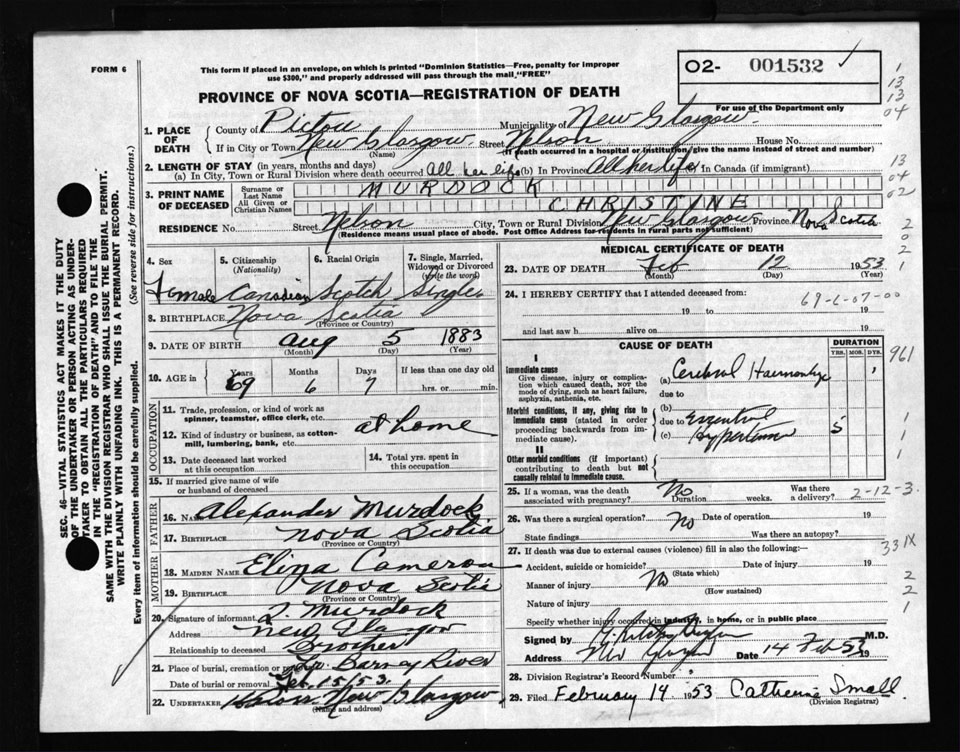 FORM 6
This form if placed in an envelope, on which is printed "Dominion Statistics—Free, penalty for improper
use $300," and properly addressed will pass through the mail, "FREE"
PROVINCE OF NOVA SCOTIA—REGISTRATION OF DEATH
02- 001532
For use of the Department only
1. PLACE OF DEATH
County of Pictou Municipality of New Glasgow
If in City or Town New Glasgow Street Nelson House No.
(Name) (If death occurred in a hospital or institution, give the name instead of street and number)
2. LENGTH OF STAY (in years, months and days)
(a) In City, Town or Rural Division where death occurred All her life (b) In Province All her life (c) In Canada (if immigrant)
3. PRINT NAME OF DECEASED
Surname or Last Name MURDOCK
All Given or Christian Names CHRISTINE
RESIDENCE No. Street Nelson City, Town or Rural Division New Glasgow Province Nova Scotia
(Residence means usual place of abode. Post Office Address for residents in rural parts not sufficient)
4. Sex
Female
5. Citizenship
(Nationality)
Canadian
6. Racial Origin
Scotch
7. Single, Married, Widowed or Divorced
(write the word)
Single
8. BIRTHPLACE Nova Scotia
(Province or Country)
9. DATE OF BIRTH Aug 5 1883
(Month) (Day) (Year)
10. AGE in
Years Months Days If less than one day old
69 6 7 hrs. or min.
OCCUPATION
11. Trade, profession, or kind of work as
spinner, teamster, office clerk, etc.
at home
12. Kind of industry or business, as cotton-
mill, lumbering, bank, etc.
13. Date deceased last worked
at this occupation
14. Total yrs. spent in
this occupation
15. If married give name of wife
or husband of deceased
FATHER
16. Name Alexander Murdock
17. Birthplace Nova Scotia
(Province or Country)
MOTHER
18. MAIDEN NAME Eliza Cameron
19. BIRTHPLACE Nova Scotia
(Province or Country)
20. Signature of informant Murdock
Address New Glasgow
Relationship to deceased Brother
21. Place of burial, cremation or removal Barney River
Date of burial or removal Feb. 15/53
22. UNDERTAKER New Glasgow
(Name and address)
MEDICAL CERTIFICATE OF DEATH
23. DATE OF DEATH Feb 12 1953
(Month) (Day) (Year)
24. I HEREBY CERTIFY that I attended deceased from:
69-6-07-00
19 to 19
and last saw h alive on 19
CAUSE OF DEATH
DURATION
YRS. MOS. DYS.
I
Immediate cause
Give disease, injury or complica-
tion which caused death, not the
mode of dying, such as heart failure,
asphyxia, asthenia, etc.
(a) Cerebral Haemorrhage 1
due to
Morbid conditions, if any, giving rise to
immediate cause (stated in order
proceeding backwards from im-
mediate cause).
(b)
due to Essential
(c) Hypertension 5
II
Other morbid conditions (if important)
contributing to death but not
causally related to immediate cause.
25. If a woman, was the death
associated with pregnancy? No
Duration weeks. Was there
a delivery? 2-12-3
26. Was there a surgical operation? No Date of operation 19
State findings Was there an autopsy?
27. If death was due to external causes (violence) fill in also the following:—
Accident, suicide or homicide? Date of injury 19
(State which)
Manner of injury No
(How sustained)
Nature of injury
Specify whether injury occurred in industry, in home, or in public place
Signed by M.D.
Address New Glasgow Date 14 Feb 53 19
28. Division Registrar's Record Number
29. Filed February 14 1953 Catherine Small
(Division Registrar)
1
13
13
04
13
04
02
2
0
2
1
961
1
1
1
331X
2
2
1
SEC. 46—VITAL STATISTICS ACT MAKES IT THE DUTY
OF THE UNDERTAKER OR PERSON ACTING AS UNDER-
TAKER TO OBTAIN ALL THE PARTICULARS REQUIRED
IN THE "REGISTRATION OF DEATH" AND TO FILE THE
SAME WITH THE DIVISION REGISTRAR WHO SHALL ISSUE THE BURIAL PERMIT.
WRITE PLAINLY WITH UNFADING INK. THIS IS A PERMANENT RECORD.
Every item of information should be carefully supplied. (See reverse side for instructions.)